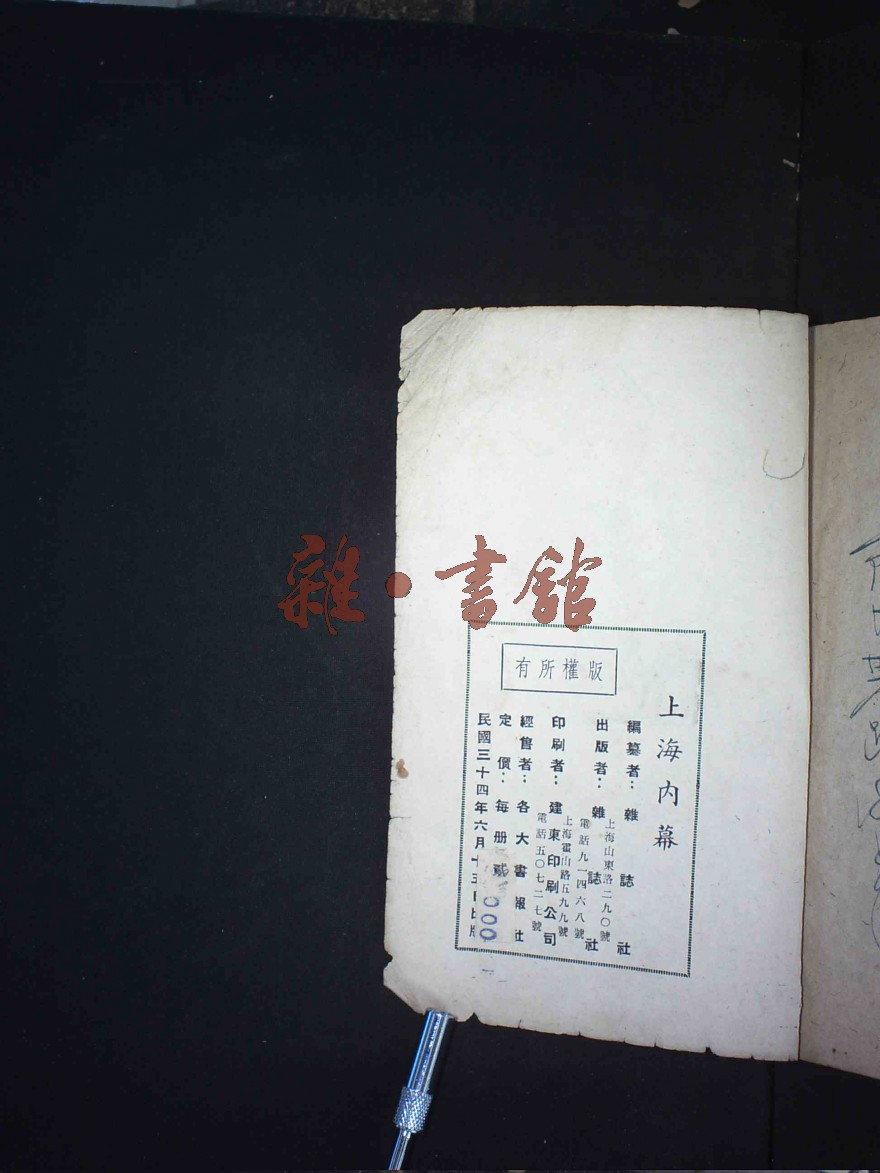 雜·書館
版權所有
上海內幕
編纂者：雜誌社
出版者：雜誌社
上海山東路二九〇號
電話九一四六八號
印刷者：建東印刷公司
上海霍山路五九九號
電話五〇七二七號
經售者：各大書報社
定價：每册貳
000
民國三十四年六月十五日出版